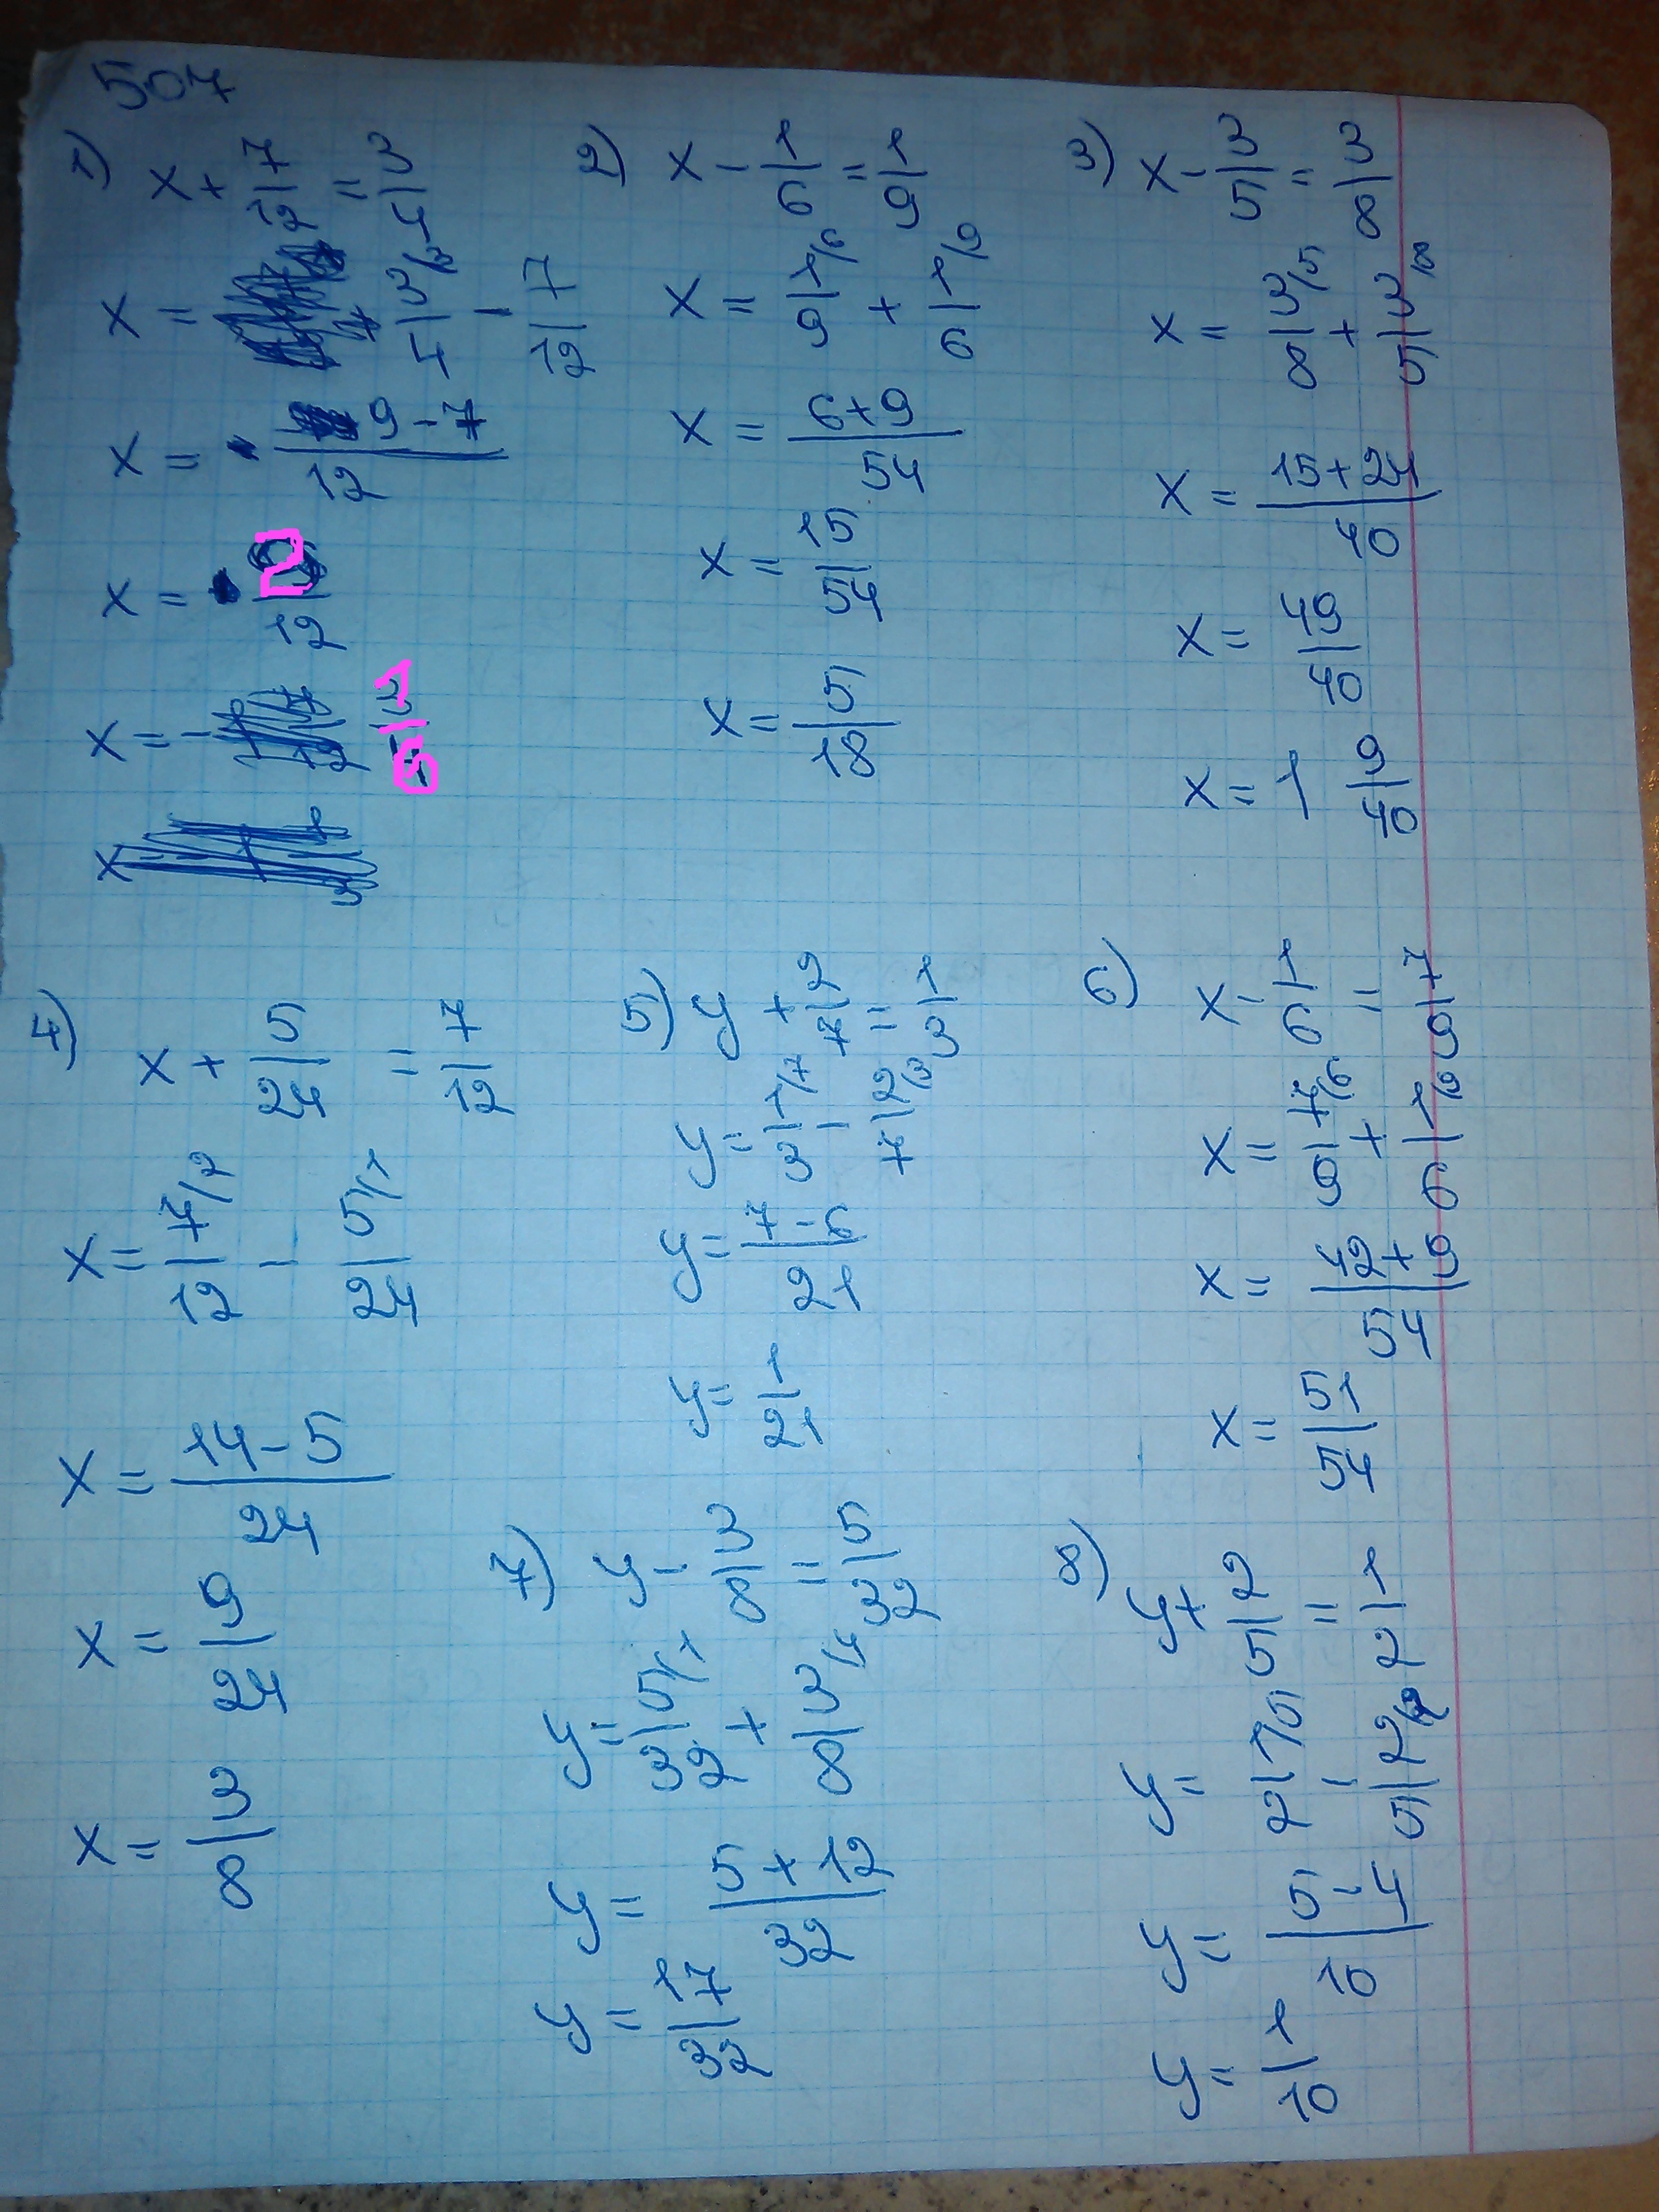 507
1) x + 7/12 = 3/4
x = 3/4 /3 - 7/12
x = 9-7/12
x = 2/12
x =
2) x - 1/6 = 1/9
x = 1/9 /6 + 1/6 /9
x = 6+9/54
x = 15/54
x = 5/18
3) x - 3/5 = 3/8
x = 3/8 /5 + 3/5 /8
x = 15+24/40
x = 49/40
x = 1 9/40
4) x + 5/24 = 7/12
x = 7/12 /2 - 5/24 /1
x = 14-5/24
x = 9/24
x = 3/8
5) y + 2/7 = 1/3
y = 1/3 /7 - 2/7 /3
y = 7-6/21
y = 1/21
6) x - 1/6 = 7/9
x = 7/9 /6 + 1/6 /9
x = 42+9/54
x = 51/54
7) y - 3/8 = 5/32
y = 5/32 /1 + 3/8 /4
y = 5+12/32
y = 17/32
8) y + 2/5 = 1/2
y = 1/2 /5 - 2/5 /2
y = 5-4/10
y = 1/10